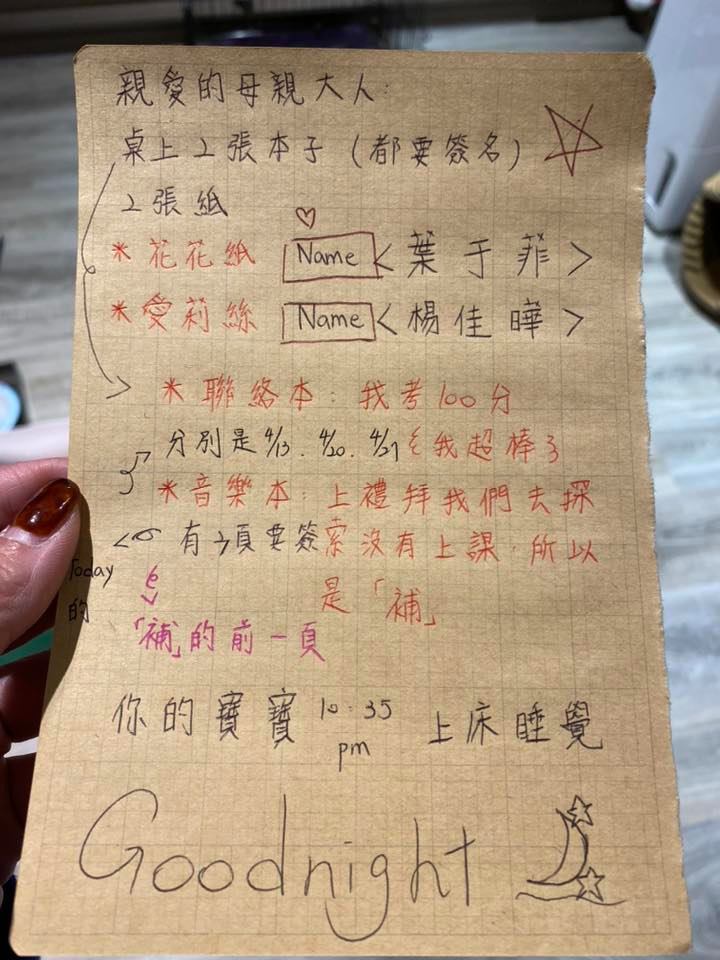 親愛的母親大人:
桌上2張本子(都要簽名)
2張紙
*花花紙 Name <葉于菲>
*愛莉絲 Name <楊佳曄>
*聯絡本:我考100分
分別是4/13、4/20、4/27 我超棒
*音樂本:上禮拜我們去探
有3頁要簽 索沒有上課,所以
Today的
是「補」
「補」的前一頁
你的寶寶 10:35 pm 上床睡覺
Goodnight